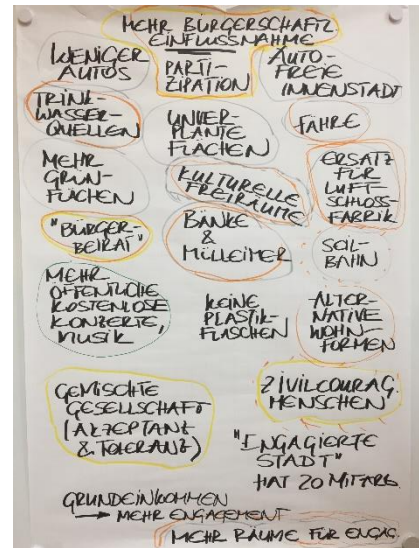 MEHR BÜRGERSCHAFTL.
EINFLUSSNAHME
WENIGER
AUTOS
PARTI-
ZIPATION
AUTO-
FREIE
INNENSTADT
TRINK-
WASSER-
QUELLEN
UNVER-
PLANTE
FLÄCHEN
FÄHRE
MEHR
GRÜN-
FLÄCHEN
KULTURELLE
FREIRÄUME
ERSATZ
FÜR
LUFT-
SCHLOSS-
FABRIK
"BÜRGER-
BEIRAT"
BÄNKE
&
MÜLLEIMER
SEIL-
BAHN
MEHR
ÖFFENTLICHE
KOSTENLOSE
KONZERTE,
MUSIK
KEINE
PLASTIK-
FLASCHEN
ALTER-
NATIVE
WOHN-
FORMEN
GEMISCHTE
GESELLSCHAFT
(AKZEPTANZ
& TOLERANZ)
ZIVILCOURAG.
MENSCHEN
"ENGAGIERTE
STADT"
HAT 20 MITARB.
GRUNDEINKOMMEN
→ MEHR ENGAGEMENT
MEHR RÄUME FÜR ENGAG.